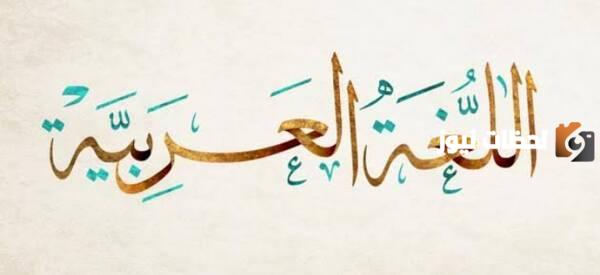 اللُّغَةُ العَرَبِيَّة
لحظات نيوز